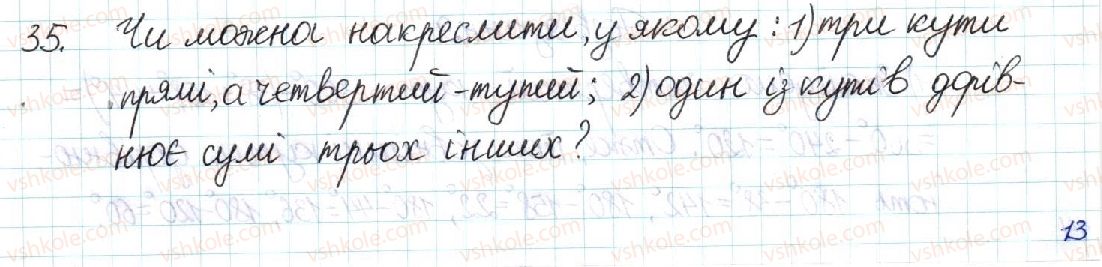 35. Чи можна накреслити, у якому: 1) три кути
прямі, а четвертий - тупий; 2) один із кутів дорів-
нює сумі трьох інших?
13